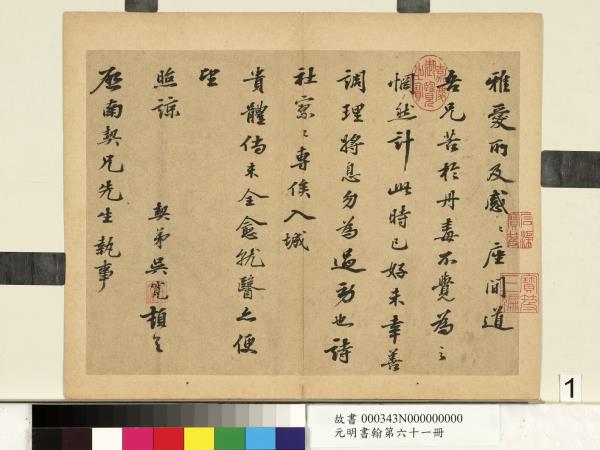 雅愛所及感〻座間道
吾兄苦於丹毒不覺為之
惘然計此時已好未幸善
調理將息勿為過勞也詩
社寥〻專俟入城
貴體倘未全愈就醫亦便
望
照諒
契弟吳寬頓首
啟南契兄先生執事
1
故書 000343N000000000
元明書翰第六十一冊